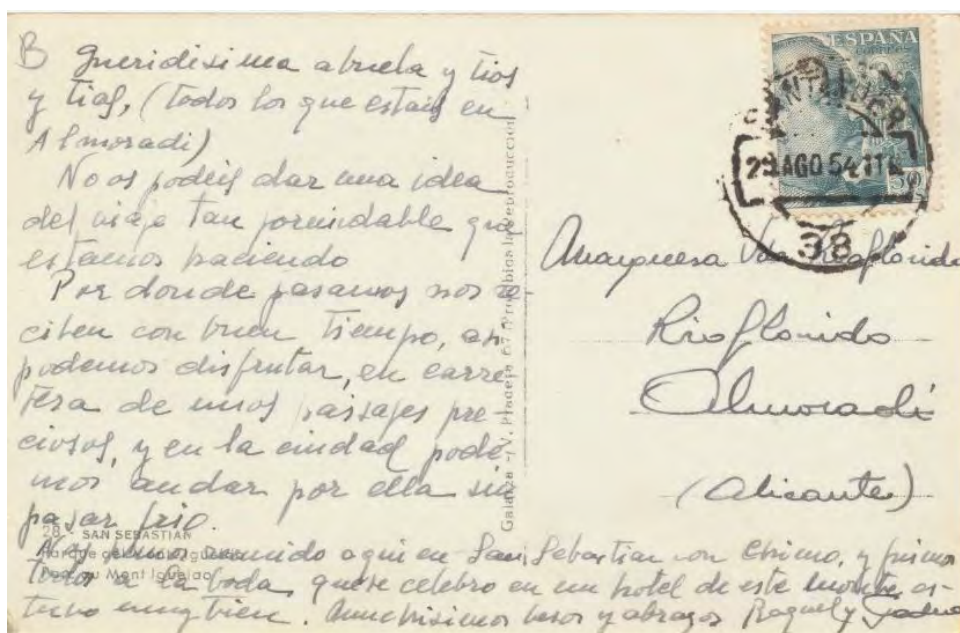 B Queridisima abuela y tios
y tias, (todos los que estais en
Almoradi)
No os podeis dar una idea
del viaje tan formidable que
estamos haciendo
Por donde pasamos nos re-
ciben con buen tiempo, asi
podemos disfrutar, en carre
tera de unos paisajes pre
ciosos, y en la ciudad pode
mos andar por ella sin
pasar frio.
28 - SAN SEBASTIAN
Parque del Monte Igueldo
Nos hemos reunido aqui en San Sebastian con Chimo, y fuimos
todos a la boda, que se celebro en un hotel de este monte, es-
tuvo muy bien. Muchisimos besos y abrazos Raquel y
Galarza - V. Pradera 67 (Prohibida la reproducción)
ESPAÑA
CORREOS
SANTANDER
29 AGO 54 11
38
Marquesa Vda Rioflorido
Rioflorido
Almoradi
(Alicante)